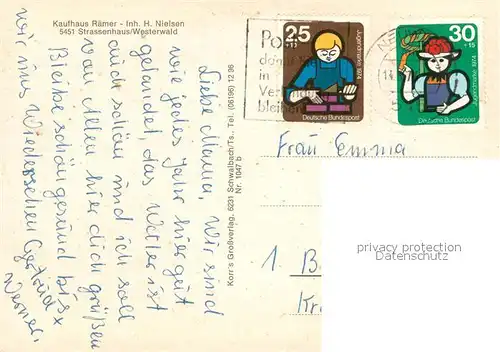 Kaufhaus Rämer - Inh. H. Nielsen
5451 Strassenhaus/Westerwald
Liebe Mama, Wir sind
wie jedes Jahr hier gut
gelandet, das Wetter ist
auch schön und ich soll
von allen hier dich grüßen
Bleibe schön gesund bis
wir uns Wiedersehen Gertrud
Werner.
Korr's Großverlag, 6231 Schwalbach/Ts., Tel. (06196) 12 96
Nr. 1047 b
25
+10
Jugendmarke 1974
Deutsche Bundespost
30
+15
Jugendmarke 1974
Deutsche Bundespost
in
bleiben
Frau Emma
1. B
Kr
privacy protection
Datenschutz